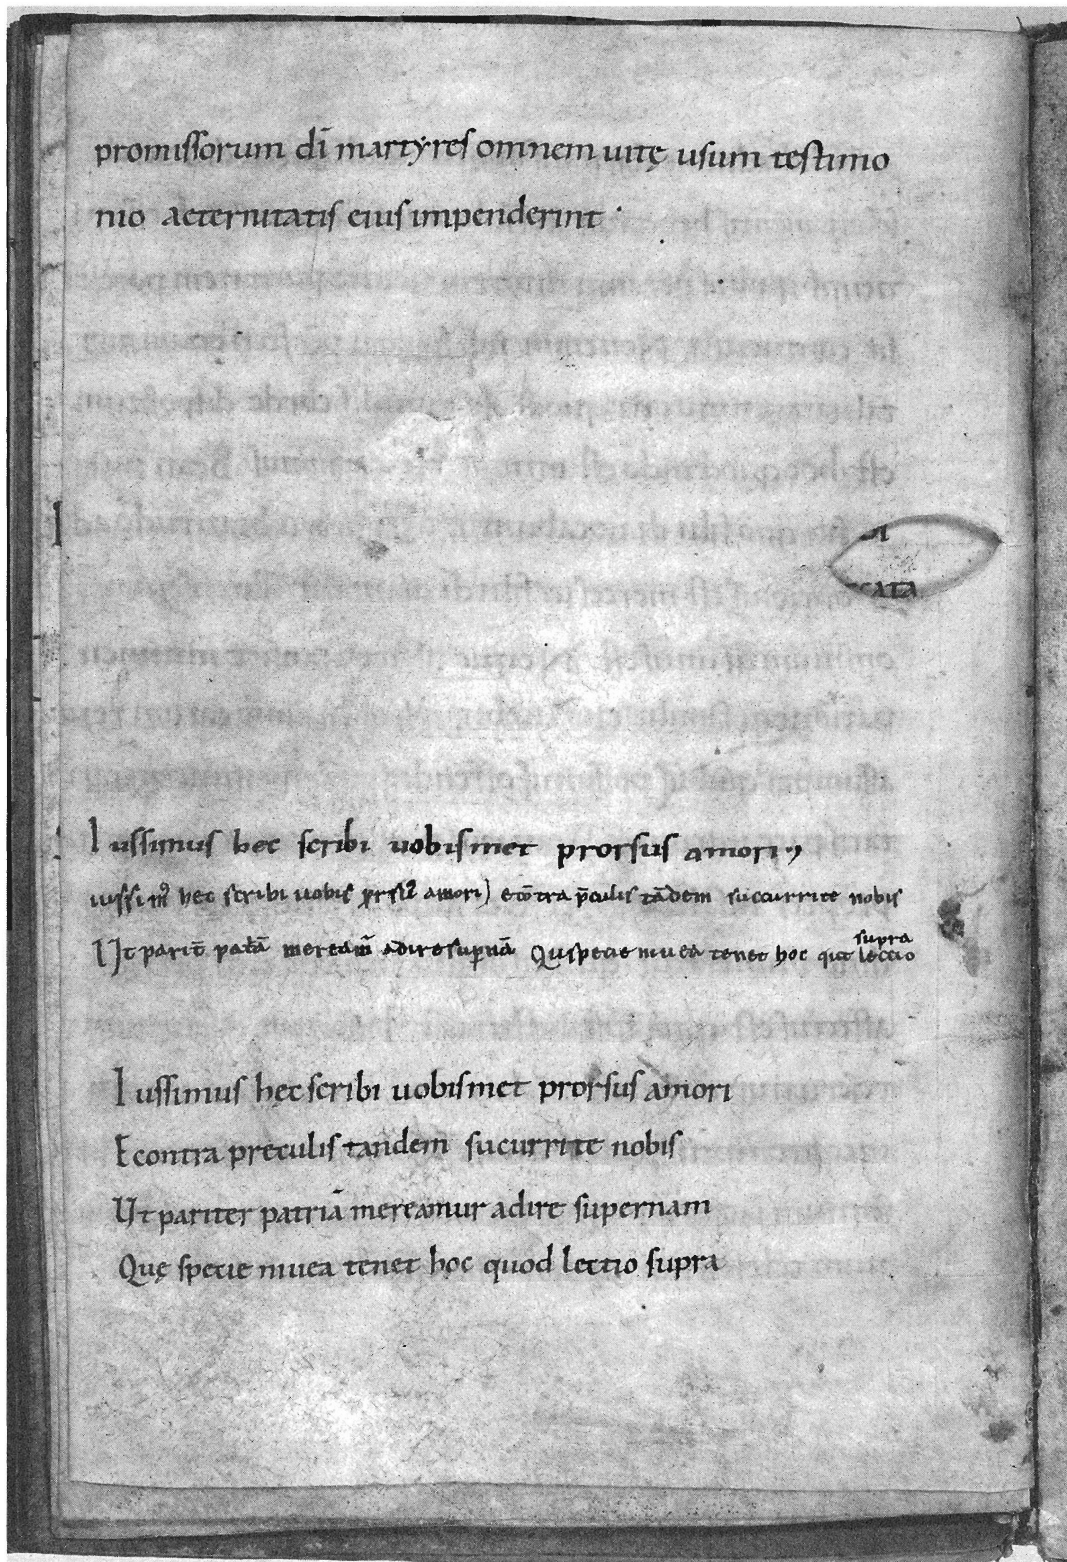 promissorum dī martyres omnem uitę usum testimo
nio aeternitatis eius impenderint
Iussimus hec scribi uobismet prorsus amori
iussim᷒ hec scribi uobis amori ecōtra p̄culis tādem succurrite nobis
supra
Ut parit̄ meream̄ adire Qu specie niuea tenet hoc lectio
Iussimus hęc scribi uobismet prorsus amori
Econtra preculis tandem sucurrite nobis
Ut pariter patriā mereamur adire supernam
Quę specie niuea tenet hoc quod lectio supra